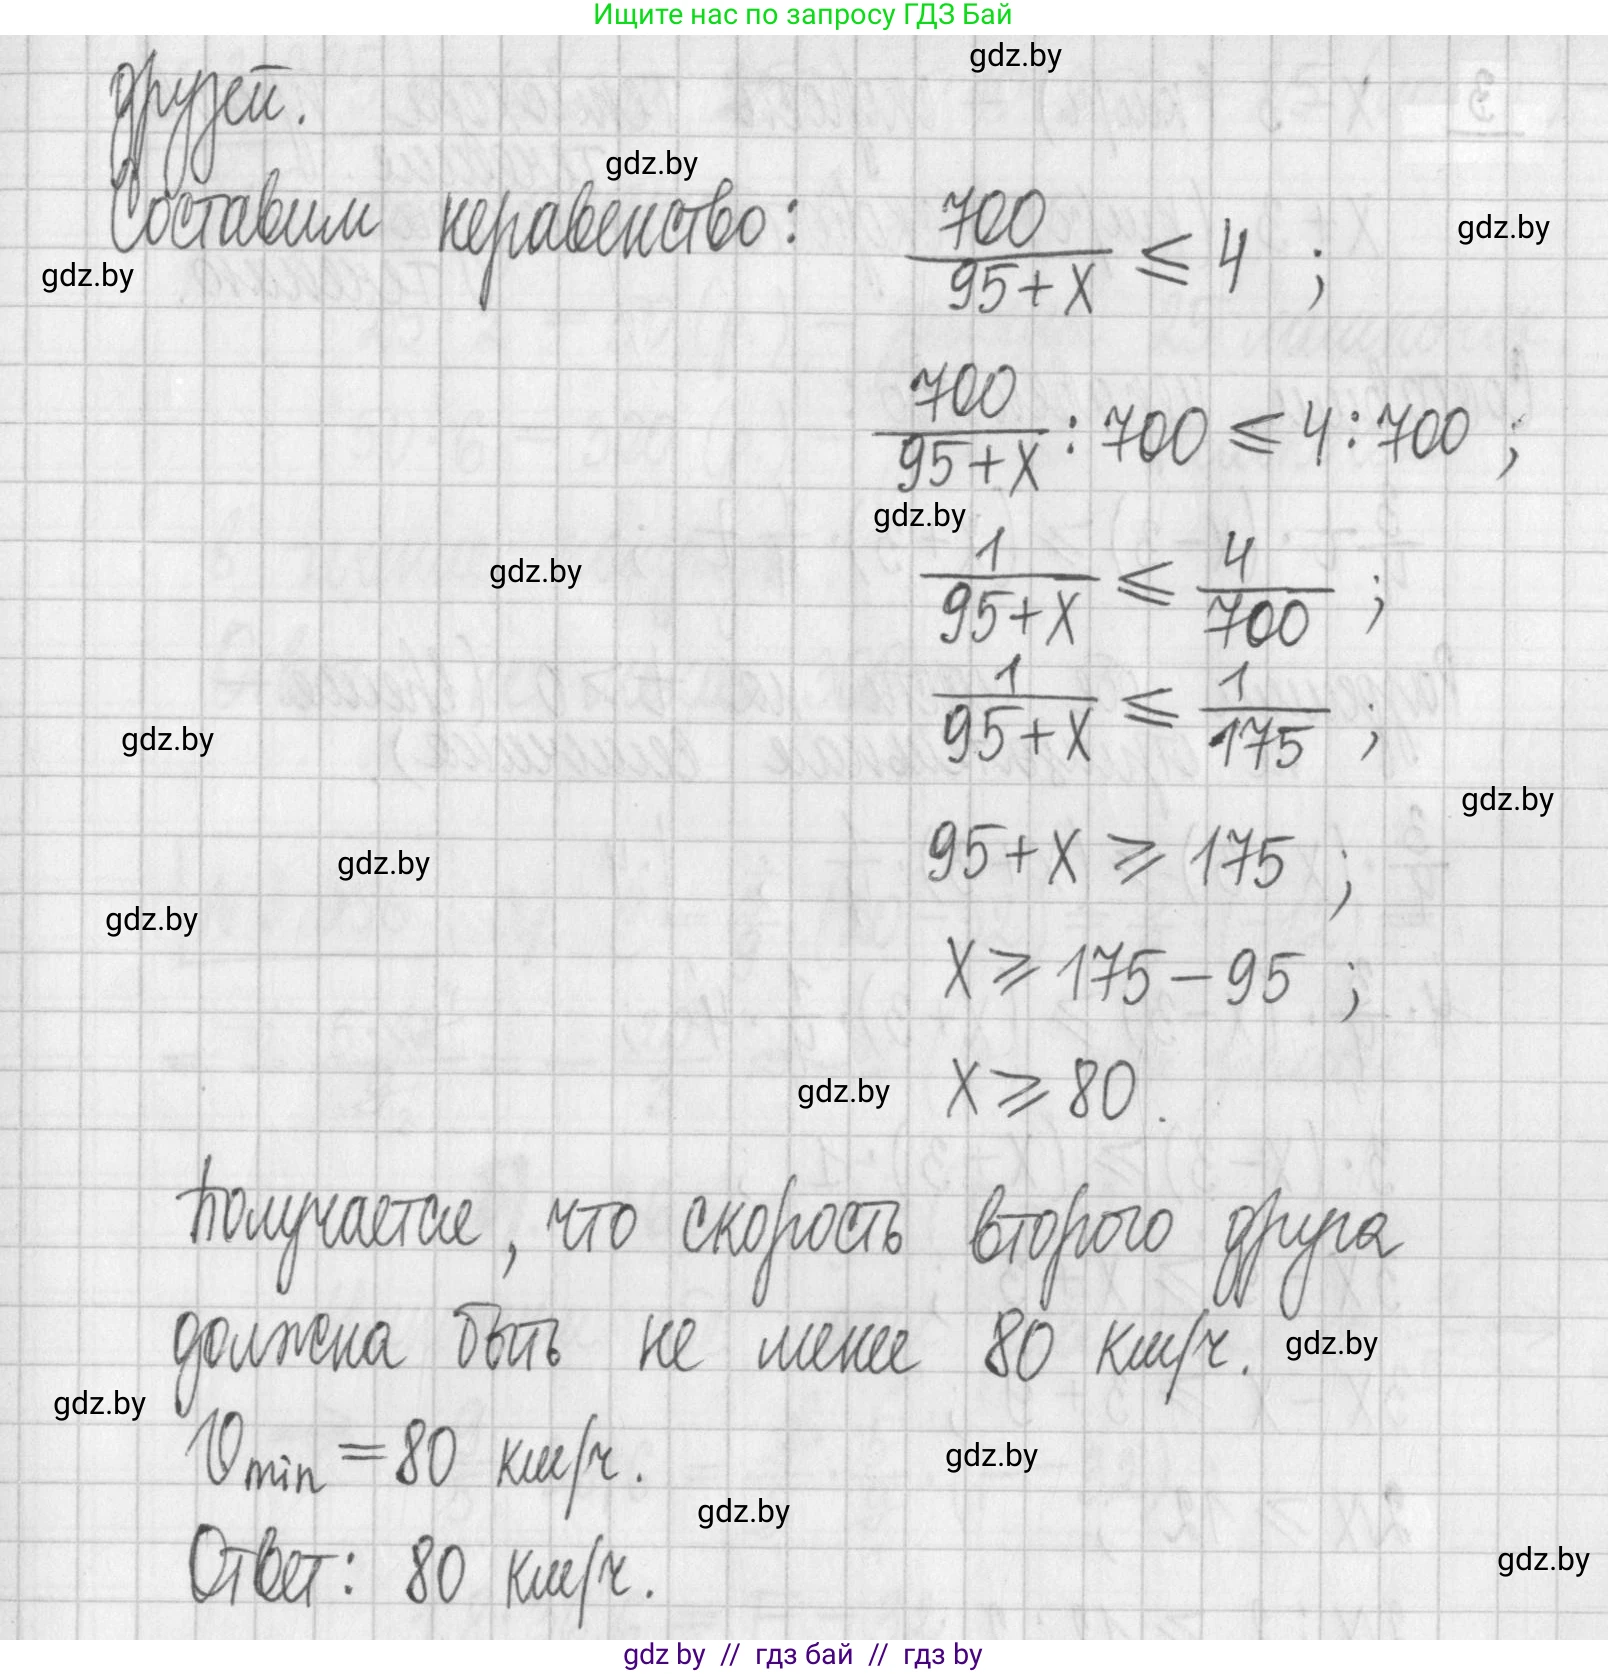 Ищите нас по запросу ГДЗ Бай
gdz.by
друзей.
gdz.by
Составим неравенство: 700/(95+x) ⩽ 4 ;
gdz.by
gdz.by
700/(95+x) : 700 ⩽ 4 : 700 ;
gdz.by
gdz.by
1/(95+x) ⩽ 4/700 ;
1/(95+x) ⩽ 1/175 ;
gdz.by
gdz.by
95+x ⩾ 175 ;
gdz.by
gdz.by
x ⩾ 175 – 95 ;
x ⩾ 80.
gdz.by
Получается, что скорость второго друга
должна быть не менее 80 км/ч.
gdz.by
gdz.by
υmin = 80 км/ч.
gdz.by
gdz.by
Ответ: 80 км/ч.
gdz.by
gdz by // гдз бай // гдз by